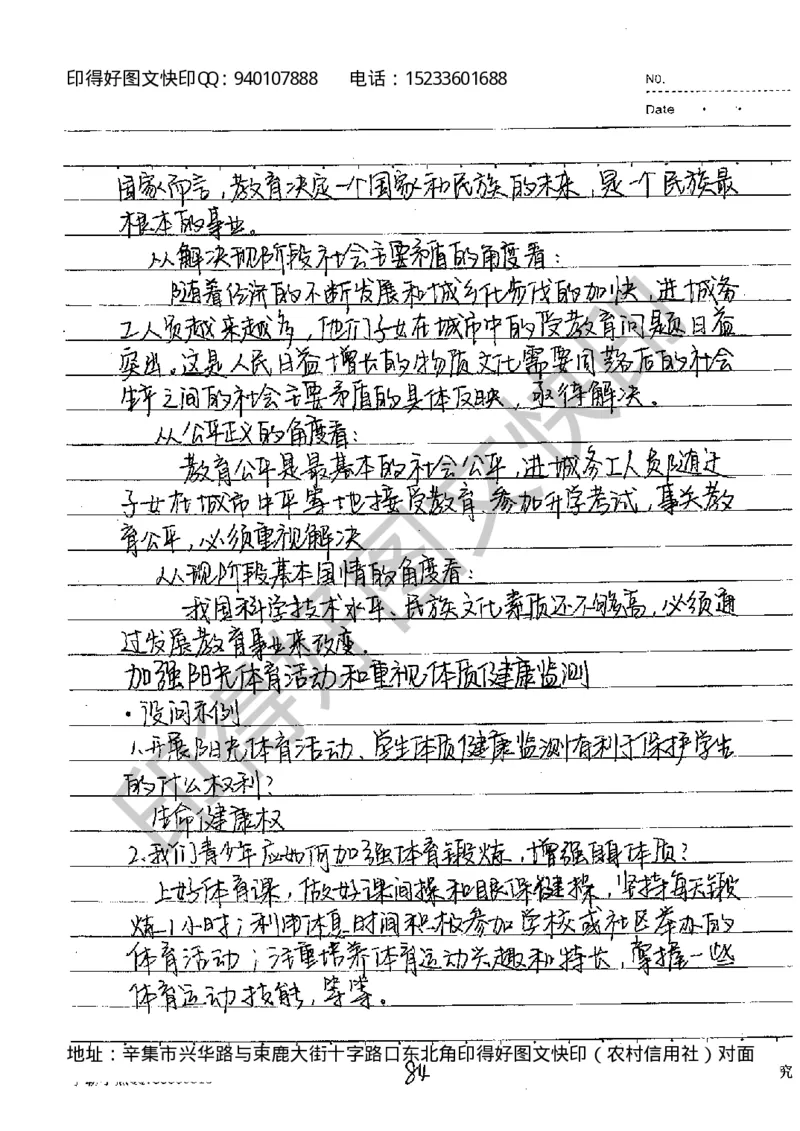 印得好图文快印QQ：940107888 电话：15233601688
NO.
Date
国家而言，教育决定一个国家和民族的未来，是一个民族最
根本的事业。
从解决现阶段社会主要矛盾的角度看：
随着经济的不断发展和城乡化步伐的加快，进城务
工人员越来越多，他们子女在城市中的受教育问题日益
突出。这是人民日益增长的物质文化需要同落后的社会
生产之间的社会主要矛盾的具体反映，亟待解决。
从公平正义的角度看：
教育公平是最基本的社会公平，进城务工人员随迁
子女在城市中平等地接受教育、参加升学考试，事关教
育公平，必须重视解决
从现阶段基本国情的角度看：
我国科学技术水平、民族文化素质还不够高，必须通
过发展教育事业来改变。
加强阳光体育活动和重视体质健康监测
·设问示例
1.开展阳光体育活动、学生体质健康监测有利于保护学生
的什么权利？
生命健康权
2.我们青少年应如何加强体育锻炼，增强自身体质？
上好体育课，做好课间操和眼保健操，坚持每天锻
炼1小时；利用休息时间积极参加学校或社区举办的
体育活动；注重培养体育运动兴趣和特长，掌握一些
体育运动技能，等等。
地址：辛集市兴华路与束鹿大街十字路口东北角印得好图文快印（农村信用社）对面
84
究
印得好图文快印